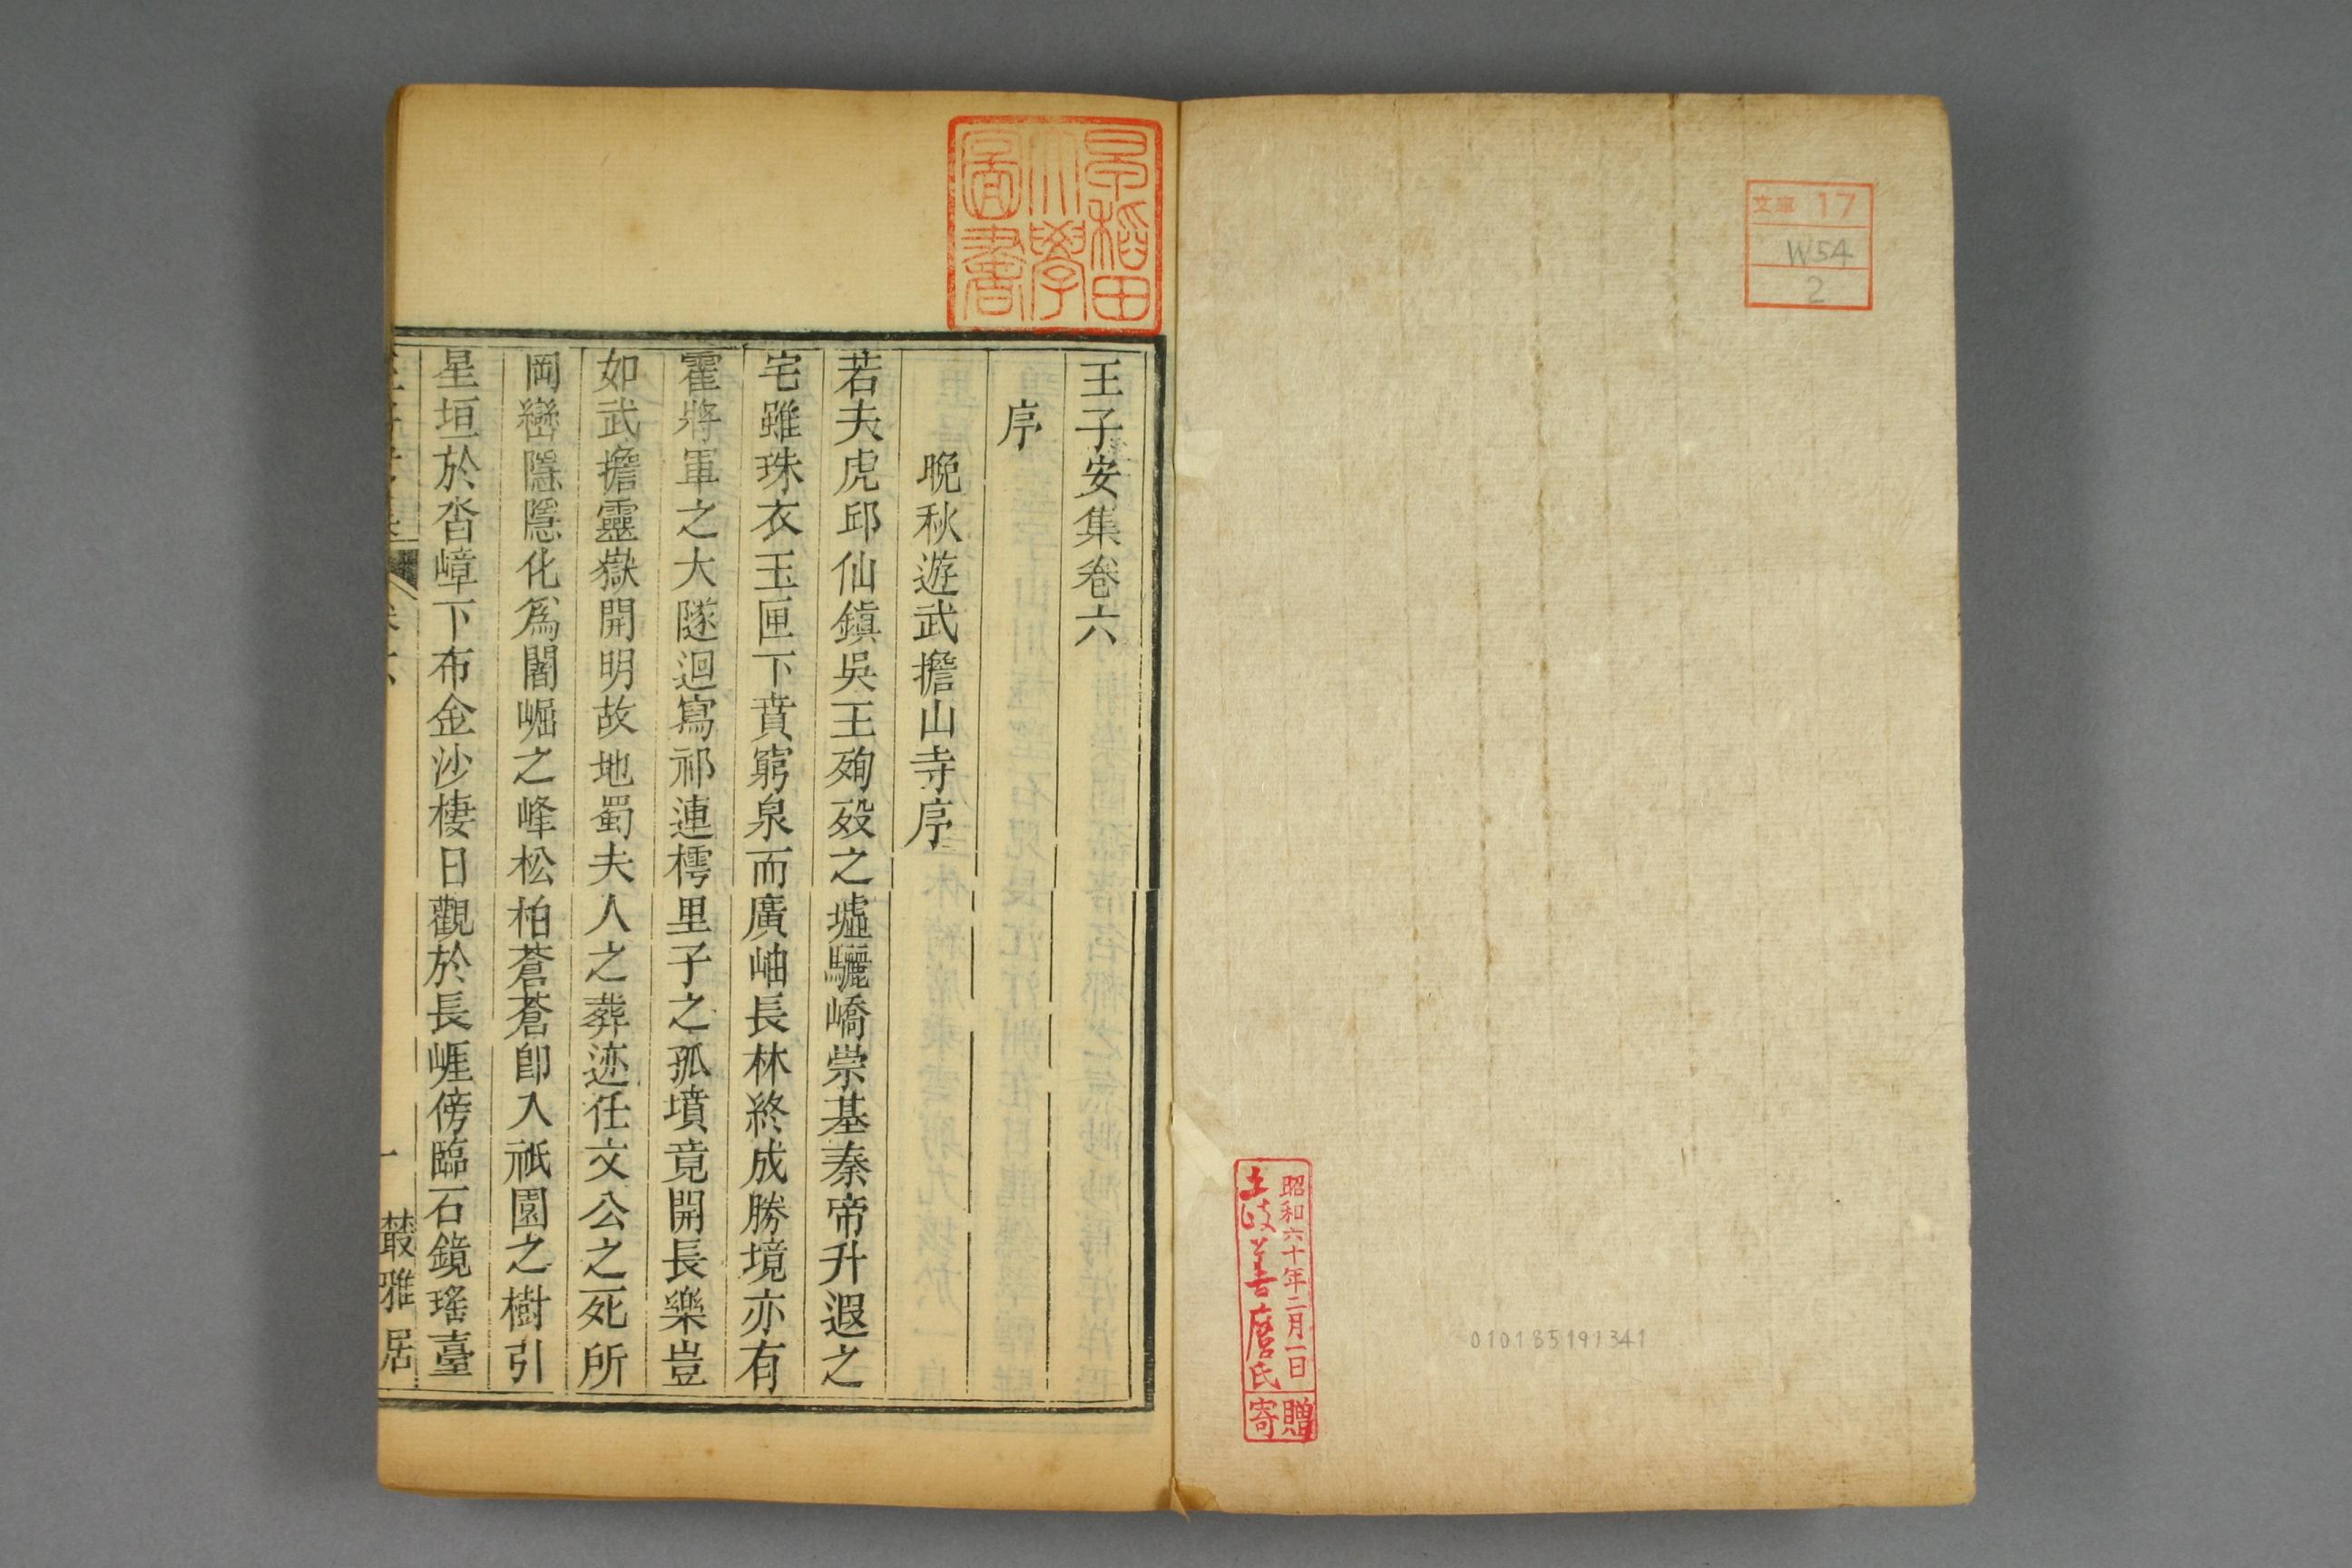 文庫 17
W54
2
昭和六十年二月一日
土岐善麿氏
寄贈
010185191341
早稲田
大學
圖書
王子安集卷六
序
晚秋遊武擔山寺序
若夫虎邱仙鎮吳王殉歿之墟驪嶠崇基秦帝升遐之
宅雖珠衣玉匣下賁窮泉而廣岫長林終成勝境亦有
霍將軍之大隧迴寫祁連樗里子之孤墳竟開長樂豈
如武擔靈嶽開明故地蜀夫人之葬迹任文公之死所
岡巒隱隱化爲闍崛之峰松柏蒼蒼卽入祇園之樹引
星垣於沓嶂下布金沙棲日觀於長崕傍臨石鏡瑤臺
卷六 一 叢雅居